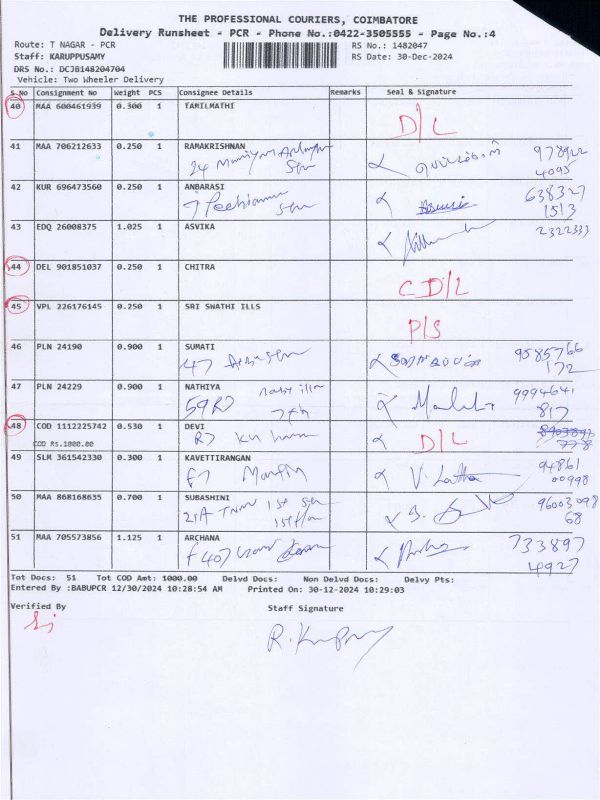 THE PROFESSIONAL COURIERS, COIMBATORE
Delivery Runsheet - PCR - Phone No.:0422-3505555 - Page No.:4
Route: T NAGAR - PCR RS No.: 1482047
Staff: KARUPPUSAMY RS Date: 30-Dec-2024
DRS No.: DCJB148204704
Vehicle: Two Wheeler Delivery
S.No Consignment No Weight PCS Consignee Details Remarks Seal & Signature
40 MAA 600461939 0.300 1 TAMILMATHI
D/L
41 MAA 706212633 0.250 1 RAMAKRISHNAN 978922
24 4095
42 KUR 696473560 0.250 1 ANBARASI 638327
7 1513
43 EDQ 26008375 1.025 1 ASVIKA 2322333
44 DEL 901851037 0.250 1 CHITRA
C D/L
45 VPL 226176145 0.250 1 SRI SWATHI ILLS
P/S
46 PLN 24190 0.900 1 SUMATI 9585766
47 172
47 PLN 24229 0.900 1 NATHIYA 9994641
59 817
48 COD 1112225742 0.530 1 DEVI
COD Rs.1000.00 D/L
49 SLM 361542330 0.300 1 KAVETTIRANGAN 94861
F7 V. Latha 00998
50 MAA 868168635 0.700 1 SUBASHINI 96003098
21A TNHB 1st 68
51 MAA 705573856 1.125 1 ARCHANA 733897
F 407 4927
Tot Docs: 51 Tot COD Amt: 1000.00 Delvd Docs: Non Delvd Docs: Delvy Pts:
Entered By :BABUPCR 12/30/2024 10:28:54 AM Printed On: 30-12-2024 10:29:03
Verified By Staff Signature